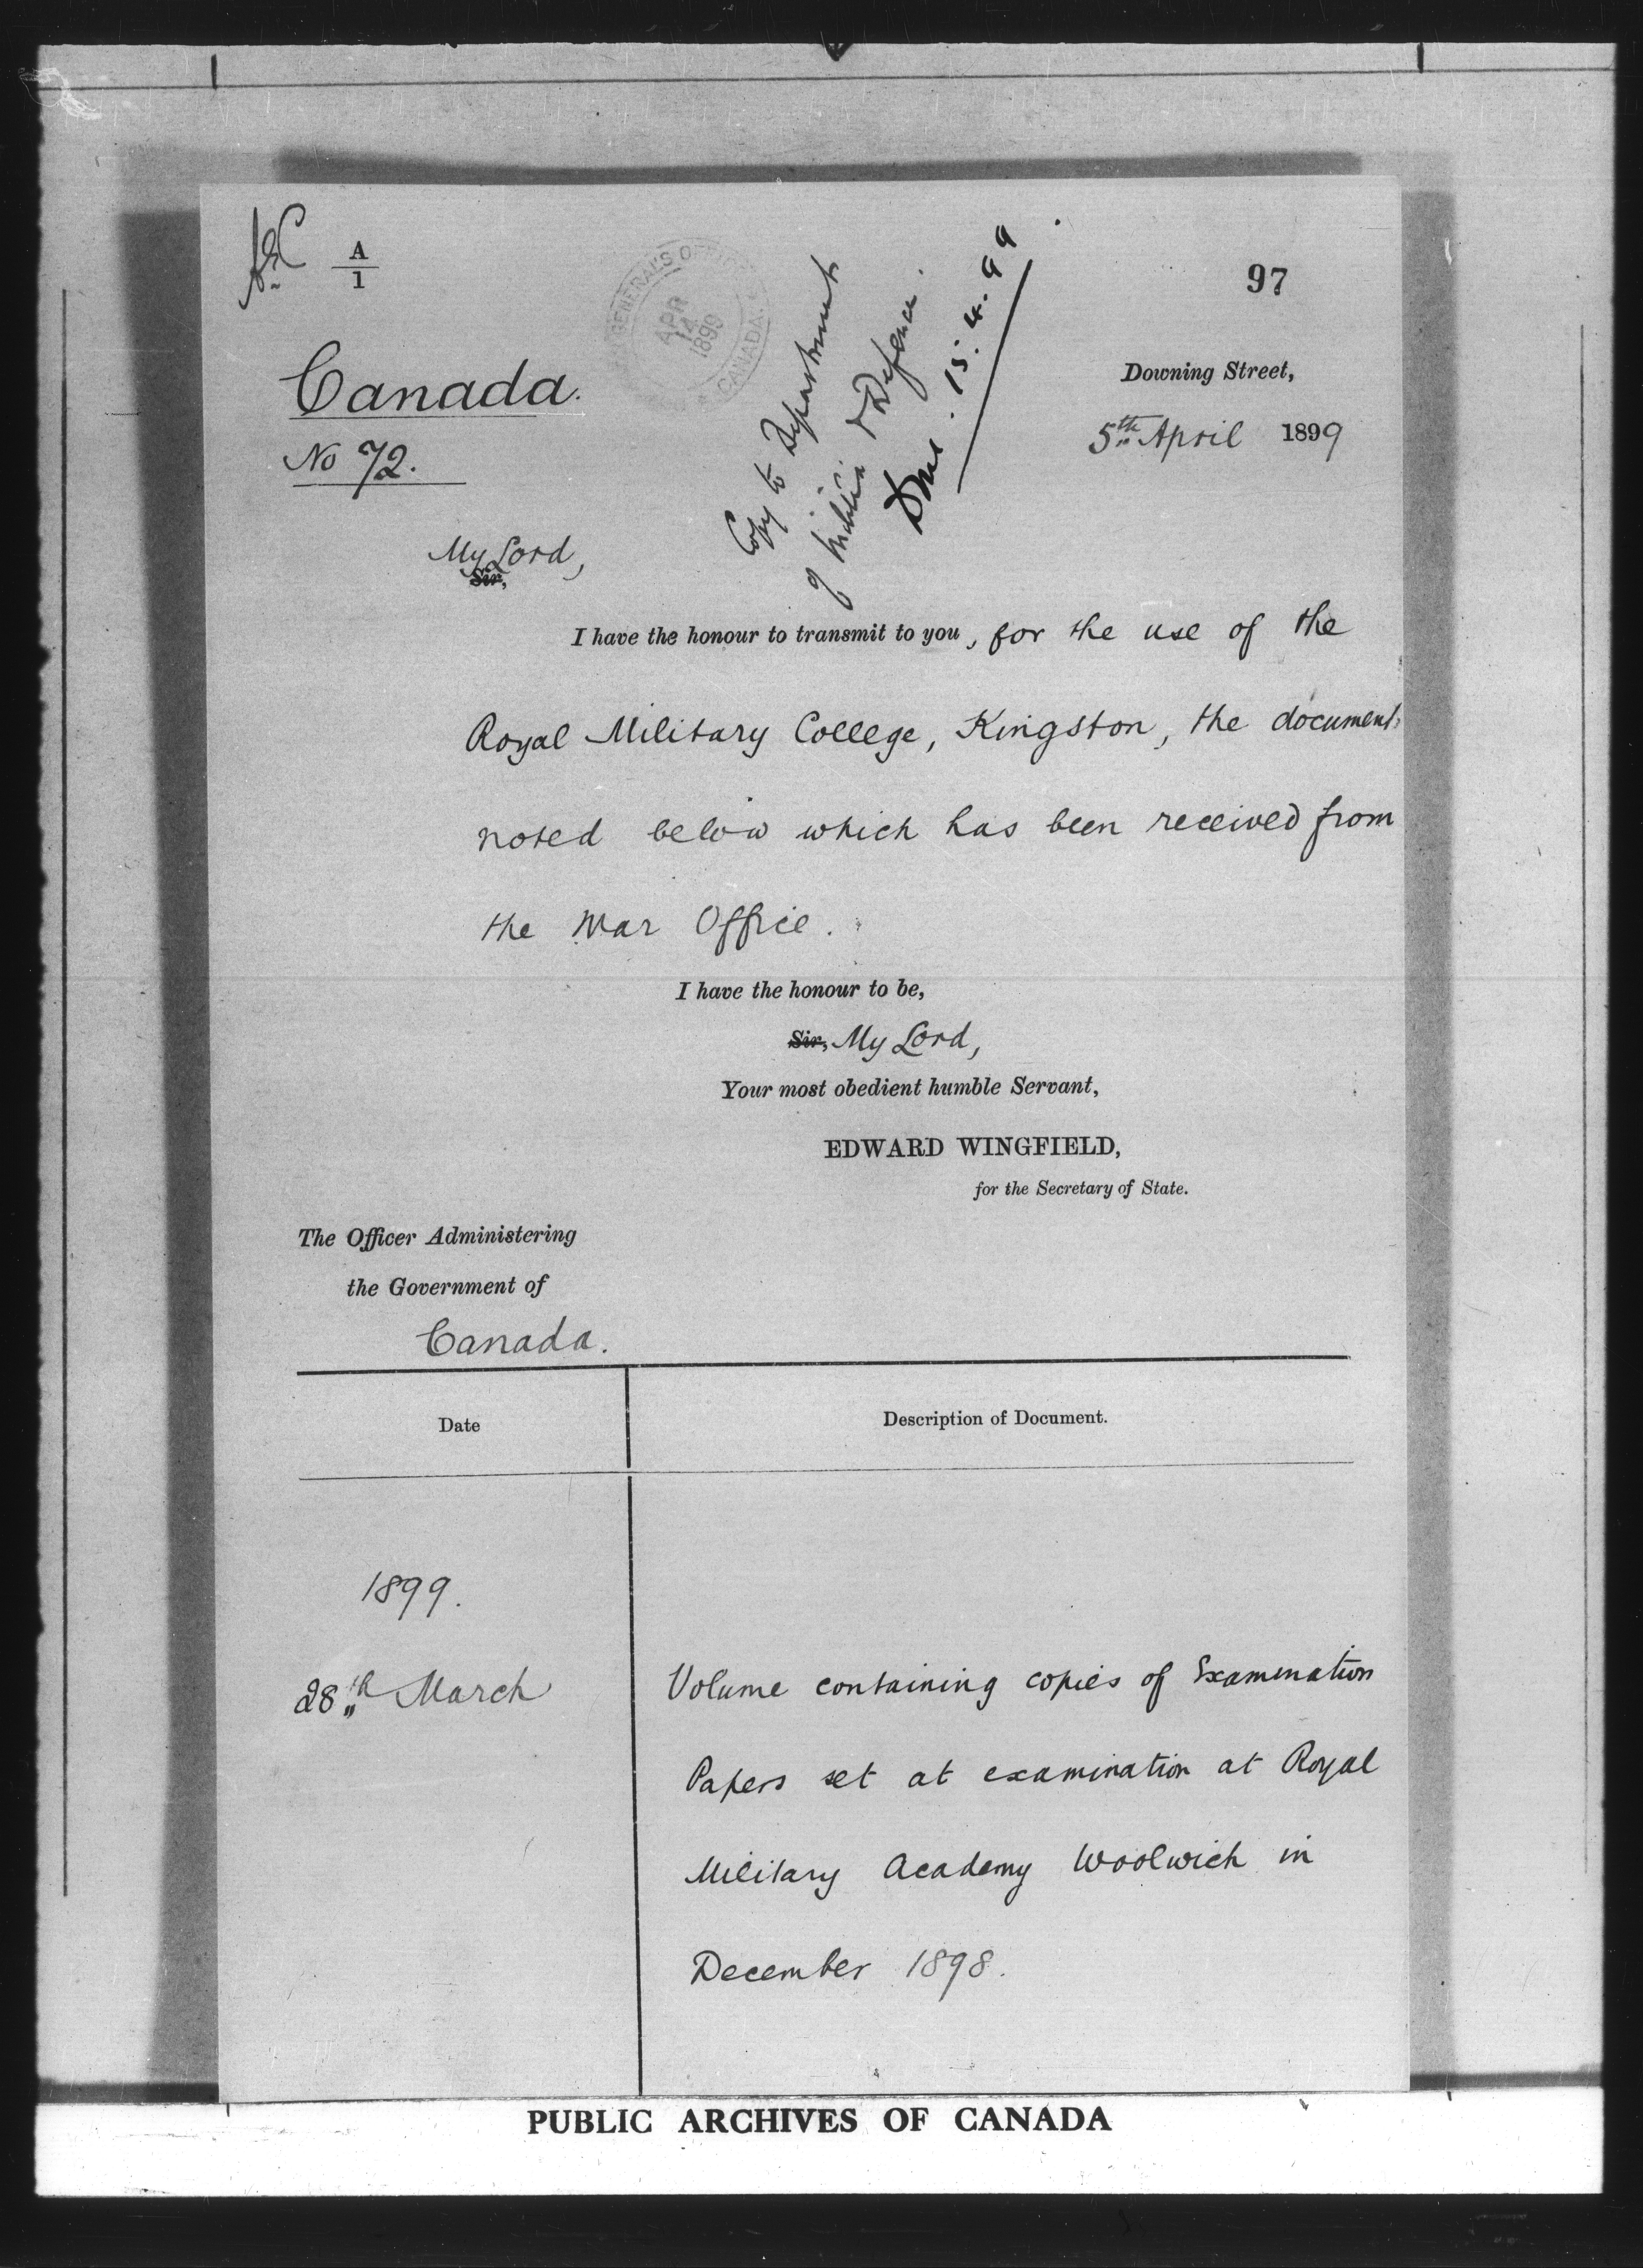 A
1
97
GENERAL'S O
APR
14
1899
CANADA.
Copy to Department
of Militia & Defence.
Done. 15.4.99
Canada.
No 72.
Downing Street,
5th April 1899
My Lord,
Sir,
I have the honour to transmit to you, for the use of the
Royal Military College, Kingston, the document
noted below which has been received from
the War Office.
I have the honour to be,
Sir, My Lord,
Your most obedient humble Servant,
EDWARD WINGFIELD,
for the Secretary of State.
The Officer Administering
the Government of
Canada.
Date
Description of Document.
1899.
28th March
Volume containing copies of Examination
Papers set at examination at Royal
Military Academy Woolwich in
December 1898.
PUBLIC ARCHIVES OF CANADA